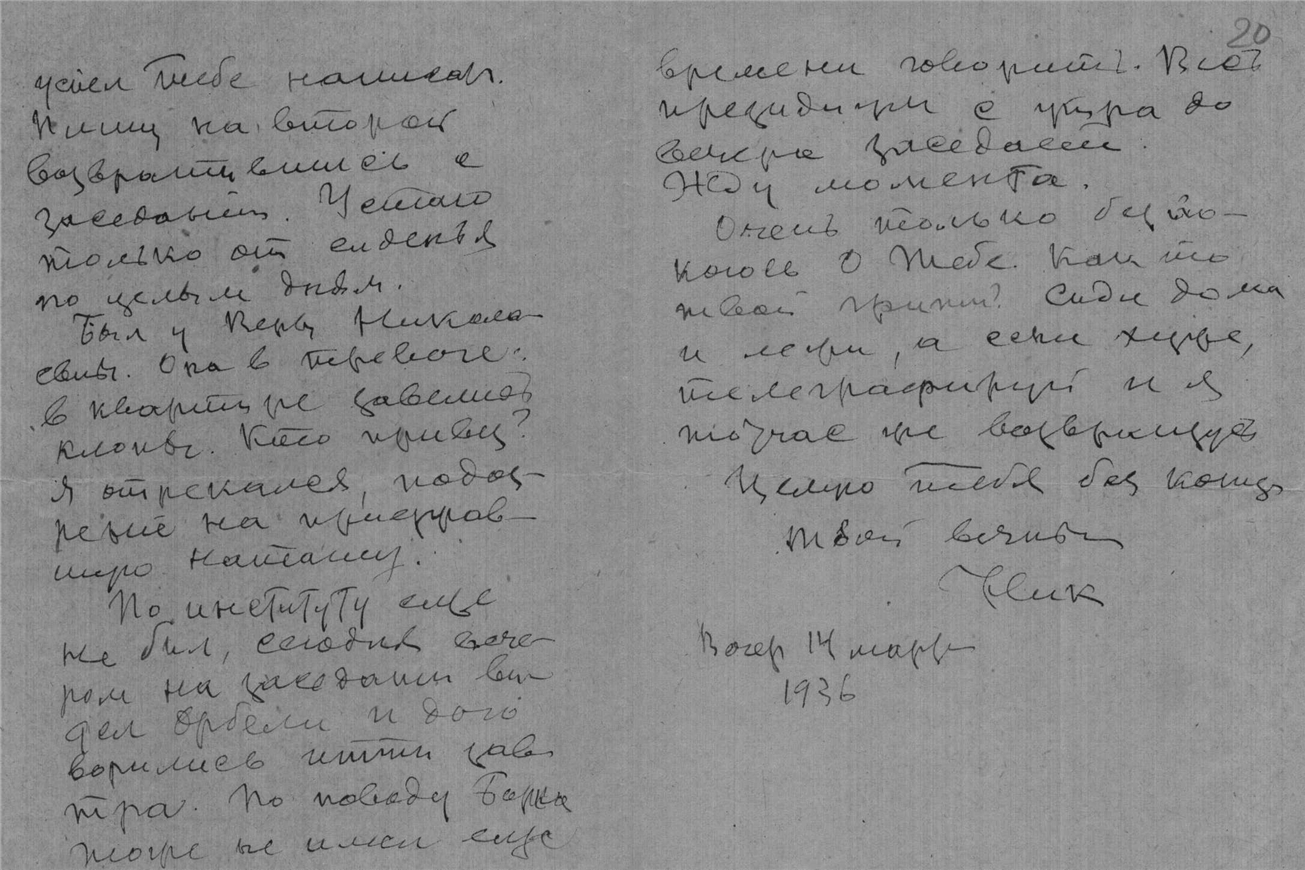 успел тебе написать.
Пишу на второй
возвратившись с
заседания. Устаю
только от сиденья
по целым дням.
Был у Веры Никола-
евны. Она в тревоге:
в квартире завелись
клопы. Кто привез?
Я отрекался, подоз-
рение на приезжав-
шую Наташу.
По институту еще
не был, сегодня вече-
ром на заседании ви-
дел Орбели и дого
ворились итти зав
тра. По поводу
тоже не имел еще
20
времени говорить. Весь
президиум с утра до
вечера заседает.
Жду момента.
Очень только беспо-
коюсь о Тебе. Как то
твой грипп? Сиди дома
и лежи, а если хуже,
телеграфируй и я
тотчас же возвращусь
Целую тебя без конца
твой вечный
Ник
Вечер 14 марта
1936